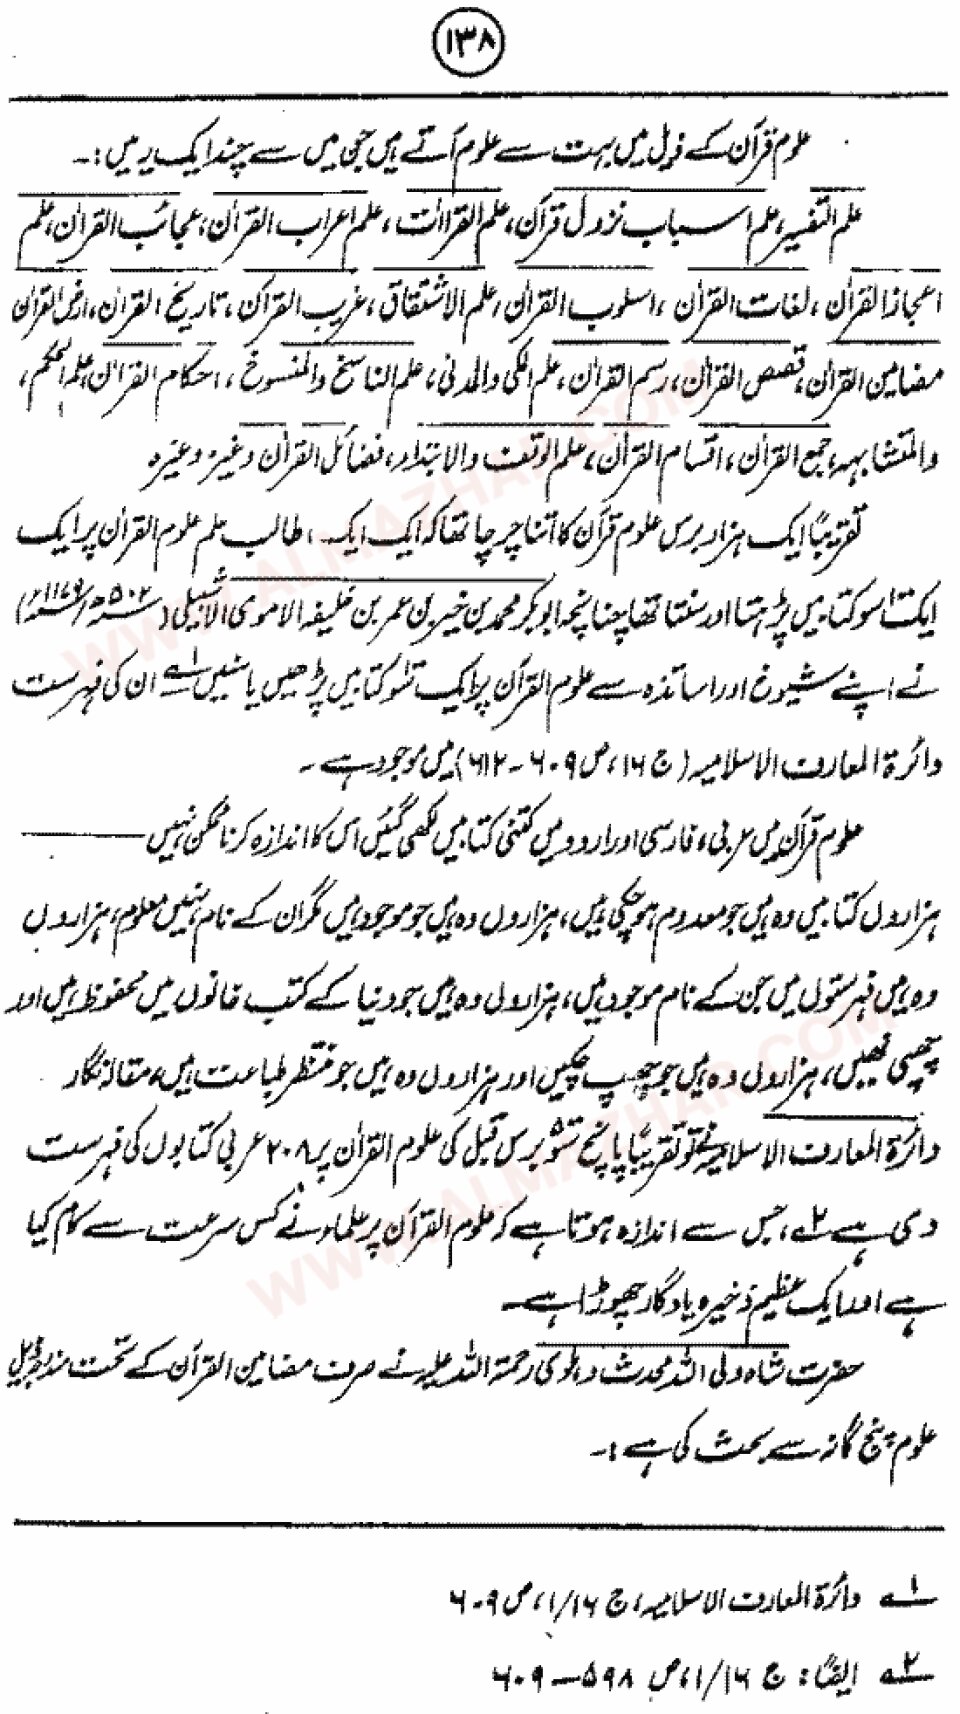 ۱۳۸
علوم قرآن کے ذیل میں بہت سے علوم آتے ہیں جن میں سے چند ایک یہ ہیں:۔
علم التفسیر، علم اسباب نزول قرآن، علم القراات، علم اعراب القرآن، عجائب القرآن، علم
اعجاز القرآن، لغات القرآن، اسلوب القرآن، علم الاشتقاق، غریب القرآن، تاریخ القرآن، ارض القرآن
مضامین القرآن، قصص القرآن، رسم القرآن، علم المکی والمدنی، علم الناسخ والمنسوخ، احکام القرآن، علم المحکم،
والمتشابہہ، جمع القرآن، اقسام القرآن، علم الوقف والابتداء، فضائل القرآن وغیرہ وغیرہ
تقریباً ایک ہزار برس علوم قرآن کا اتنا چرچا تھا کہ ایک ایک، طالب علم علوم القرآن پر ایک
ایک سو کتابیں پڑھتا اور سنتا تھا چنانچہ ابوبکر محمد بن خیر بن عمر بن خلیفہ الاموی الاشبیلی (۵۰۲ھ/۱۱۷۹ء)
نے اپنے شیوخ اور اساتذہ سے علوم القرآن پر ایک سو کتابیں پڑھیں یا سنیں ۱ے ان کی فہرست
دائرۃ المعارف الاسلامیہ (ج ۱۶، ص ۶۰۹ - ۶۱۲) میں موجود ہے۔
علوم قرآن میں عربی، فارسی اور اردو میں کتنی کتابیں لکھی گئیں اس کا اندازہ کرنا ممکن نہیں
ہزاروں کتابیں وہ ہیں جو معدوم ہو چکی ہیں، ہزاروں وہ ہیں جو موجود ہیں مگر ان کے نام نہیں معلوم، ہزاروں
وہ ہیں فہرستوں میں جن کے نام موجود ہیں، ہزاروں وہ ہیں جو دنیا کے کتب خانوں میں محفوظ ہیں اور
چھپی نہیں، ہزاروں وہ ہیں جو چھپ چکیں اور ہزاروں وہ ہیں جو منتظر طباعت ہیں، مقالہ نگار
دائرۃ المعارف الاسلامیہ نے تو تقریباً پانچ سو برس قبل کی علوم القرآن پر ۲۰۸ عربی کتابوں کی فہرست
دی ہے ۲ے، جس سے اندازہ ہوتا ہے کہ علوم القرآن پر علماء نے کس سرعت سے کام کیا
ہے اور ایک عظیم ذخیرہ یادگار چھوڑا ہے۔
حضرت شاہ ولی اللہ محدث دہلوی رحمۃ اللہ علیہ نے صرف مضامین القرآن کے تحت مندرجہ ذیل
علوم پنج گانہ سے بحث کی ہے:۔
۱ے دائرۃ المعارف الاسلامیہ، ج ۱/۱۶، ص ۶۰۹
۲ے ایضاً: ج ۱/۱۶، ص ۵۹۸ — ۶۰۹
WWW.ALMAZHAR.COM
WWW.ALMAZHAR.COM